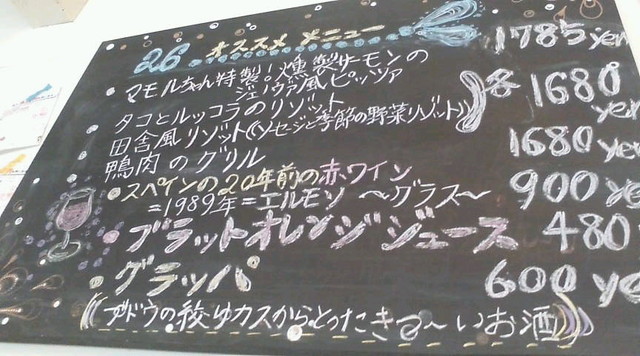 26 オススメ メニュー
マモルちゃん特製!燻製サーモンの 1785 yen
ジェノヴァ風ピッツァ
タコとルッコラのリゾット 各1680 yen
田舎風リゾット(ソーセージと季節の野菜リゾット)
鴨肉のグリル 1680 yen
・スペインの20年前の赤ワイン 900 yen
=1989年=エルモソ 〜グラス〜
・ブラットオレンジジュース 480
・グラッパ 600 ye
(ブドウの絞りカスからとったきつ〜いお酒)